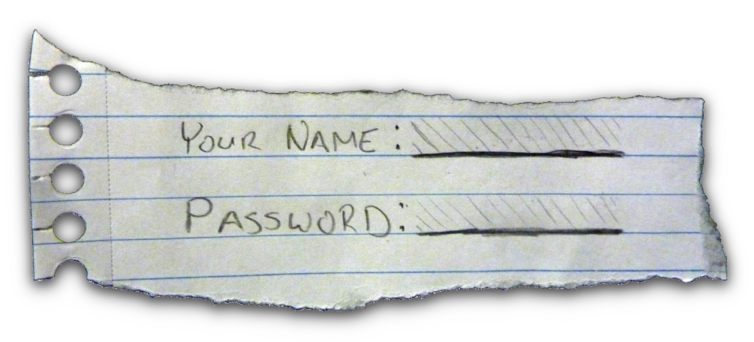 YOUR NAME:
PASSWORD: